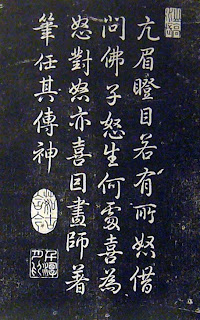 亢眉瞪目若有所怒借
問佛子怒生何處喜為
怒對怒亦喜因畫師著
筆任其傳神